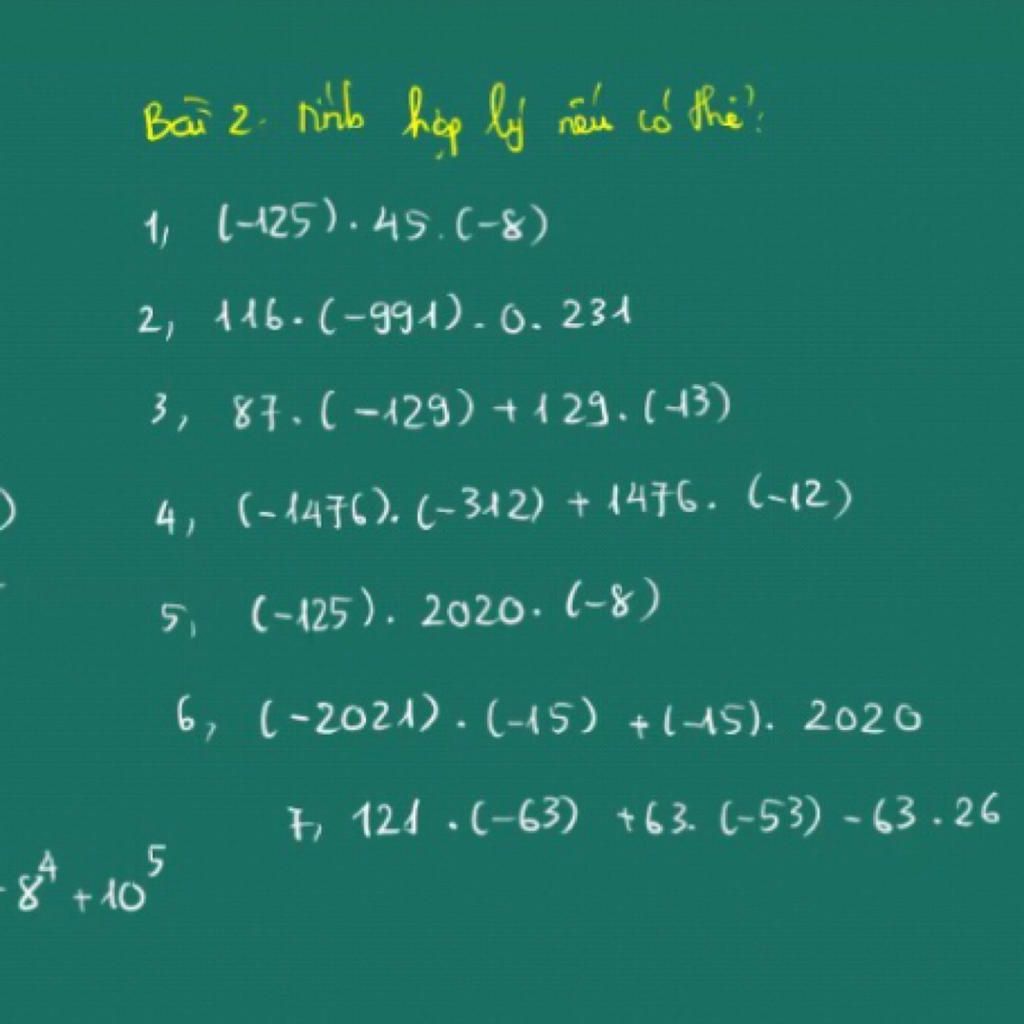 Bài 2. Tính hợp lý nếu có thể:
1, (-125) . 45 . (-8)
2, 116 . (-991) . 0 . 231
3, 87 . (-129) + 129 . (-13)
)
4, (-1476) . (-312) + 1476 . (-12)
5, (-125) . 2020 . (-8)
6, (-2021) . (-15) + (-15) . 2020
7, 121 . (-63) + 63 . (-53) - 63 . 26
8⁴ + 10⁵